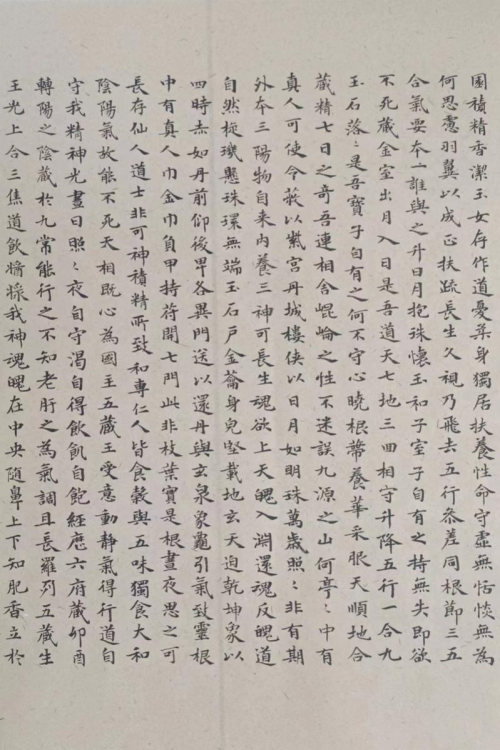 園積精香潔玉女存作道憂柔身獨居扶養性命守虛無恬惔無為
何思慮羽翼以成正扶疏長生久視乃飛去五行參差同根節三五
合氣要本一誰與之升日月抱珠懷玉和子室子自有之持無失即欲
不死藏金室出月入日是吾道天七地三四相守升降五行一合九
玉石落〻是吾寶子自有之何不守心曉根蒂養華采服天順地合
藏精七日之奇吾連相舍崐崘之性不迷誤九源之山何亭〻中有
真人可使令蔽以紫宮丹城樓俠以日月如明珠萬歲照〻非有期
外本三陽物自来內養三神可長生魂欲上天魄入淵還魂反魄道
自然璇璣懸珠環無端玉石戶金蘥身完堅載地玄天迫乾坤象以
四時赤如丹前仰後卑各異門送以還丹與玄泉象龜引氣致靈根
中有真人巾金巾負甲持符開七門此非枝葉實是根晝夜思之可
長存仙人道士非可神積精所致和專仁人皆食穀與五味獨食大和
陰陽氣故能不死天相既心為國主五藏王受意動靜氣得行道自
守我精神光晝日照〻夜自守渴自得飲飢自飽經歷六府藏卯酉
轉陽之陰藏於九常能行之不知老肝之為氣調且長羅列五藏生
王光上合三焦道飲醬漿我神魂魄在中央隨鼻上下知肥香立於